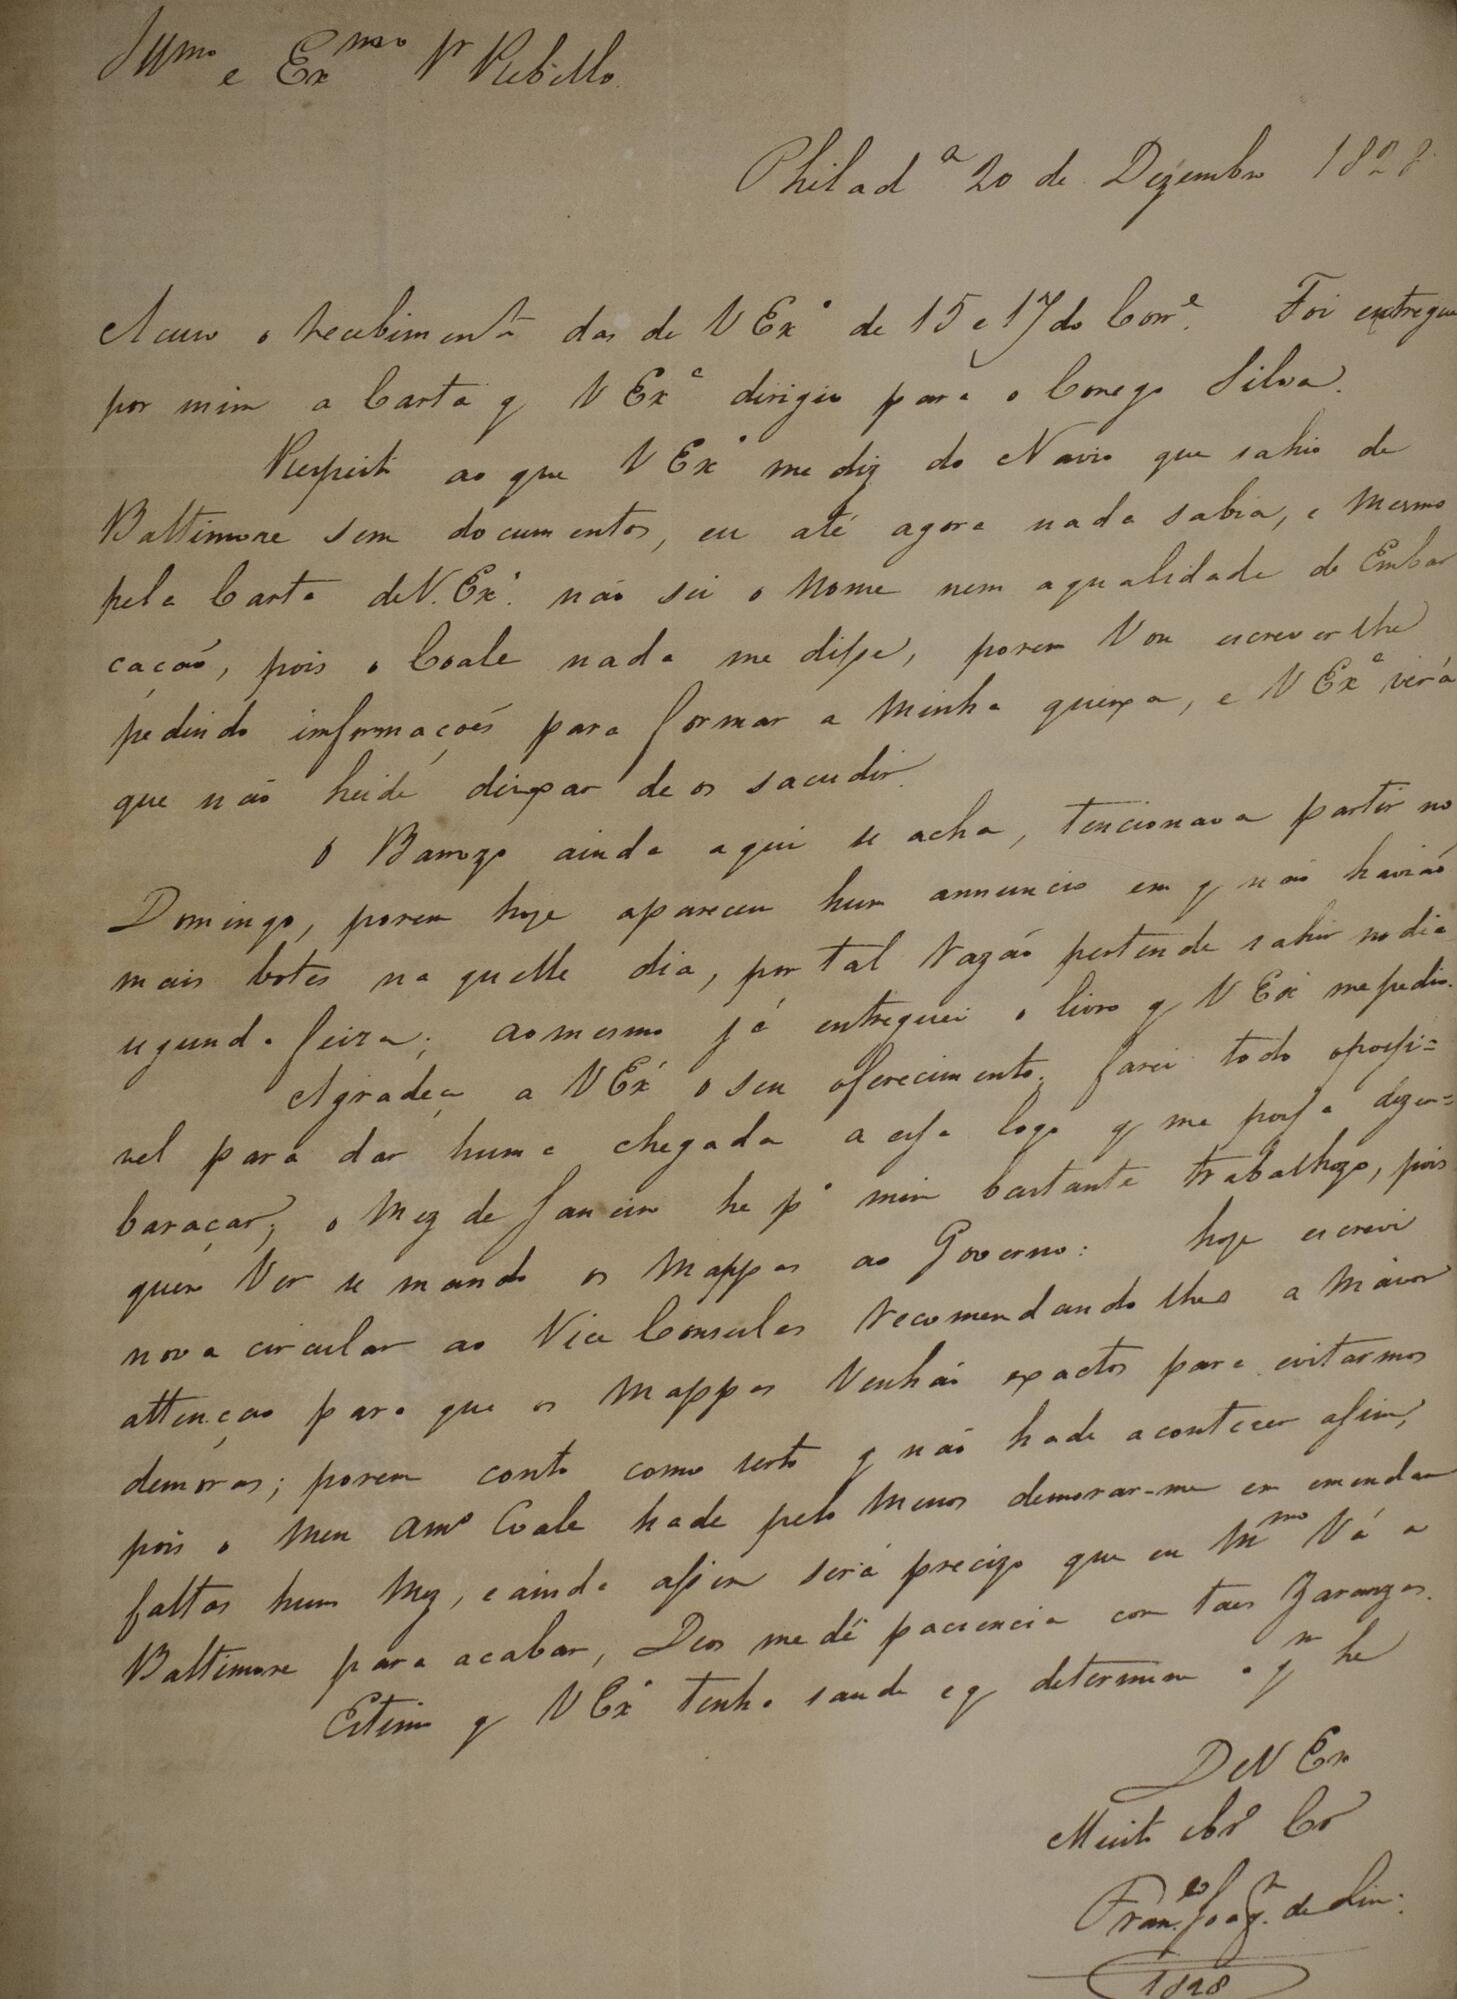 Illmo e Exmo Sr Rebello
Philada 20 de Dezembro 1828
Acuso o recebimento das de V Exa de 15 e 17 do Corre. Foi entregue
por mim a Carta q V Exa dirigio para o Conego Silva.
Respeito ao que V Exa me diz do Navio que sahio de
Baltimore sem documentos, eu até agora nada sabia, e mesmo
pela Carta de V. Exa. não sei o Nome nem a qualidade de Embar
cação, pois o Coale nada me disse, porem Vou escreverlhe
pedindo informações para formar a minha queixa, e V Exa verá
que não heide deixar de os sacudir.
O Barrozo ainda aqui se acha, tencionava partir no
Domingo, porem hoje apareceu hum annuncio em q não havião
mais botes naquelle dia, por tal razão pertende sahir no dia
segunda feira; ao mesmo já entreguei o livro q V Exa me pedio.
Agradeço a V Exa o seu oferecimento. farei todo o possi=
vel para dar huma chegada a essa logo q me possa dezem=
baraçar; o Mez de Janeiro he pa mim bastante trabalhozo, pois
quero Ver se mando os Mappas ao Governo: hoje escrevi
nova circular ao Vice Consules recomendandolhes a Maior
attenção para que os Mappas Venhão exactos para evitarmos
demóras; porem conto como certo q não hade acontecer assim,
pois o Meu Amo Coale hade pelo Menos demorar-me em emendar
faltas hum Mez, e ainda assim será precizo que eu Mmo Vá a
Baltimore para acabar, Deos me dê paciencia com taes Zarangas.
Estimo q V Exa tenha saude e q determine a qm he
De V Ex
Muito Obro Cro
Franco Joaqm. de Lima
1828